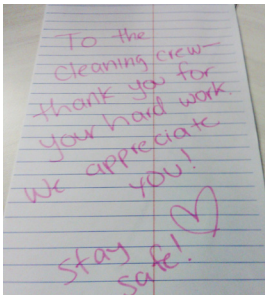 To the
cleaning crew-
thank you for
your hard work.
We appreciate
you!
stay
safe!